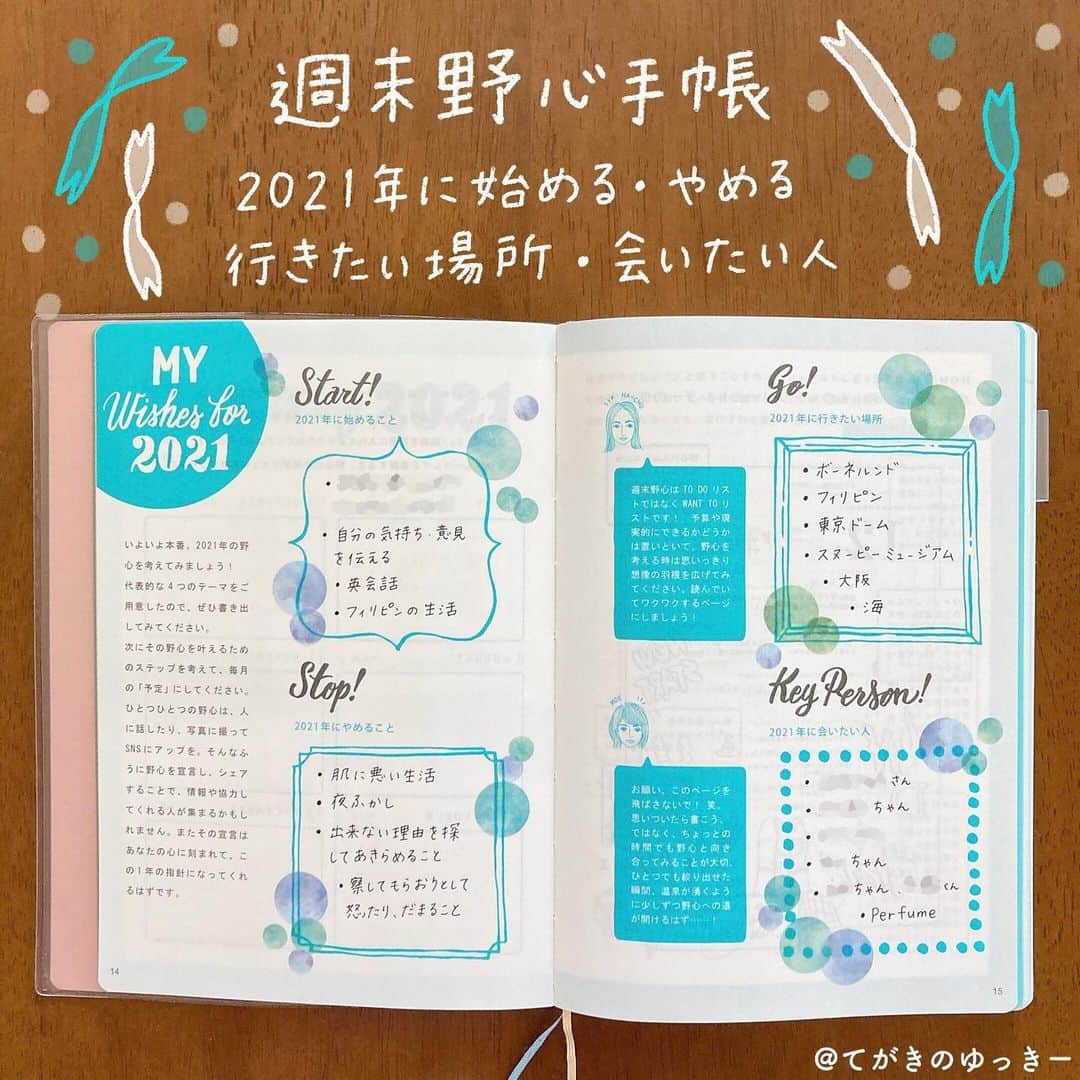 週末野心手帳
2021年に始める・やめる
行きたい場所・会いたい人
MY
Wishes for
2021
いよいよ本番。2021年の野
心を考えてみましょう！
代表的な４つのテーマをご
用意したので、ぜひ書き出
してみてください。
次にその野心を叶えるため
のステップを考えて、毎月
の「予定」にしてください。
ひとつひとつの野心は、人
に話したり、写真に撮って
SNSにアップを。そんなふ
うに野心を宣言し、シェア
することで、情報や協力し
てくれる人が集まるかもし
れません。またその宣言は
あなたの心に刻まれて、こ
の１年の指針になってくれ
るはずです。
14
Start!
2021年に始めること
・自分の気持ち・意見
を伝える
・英会話
・フィリピンの生活
Stop!
2021年にやめること
・肌に悪い生活
・夜ふかし
・出来ない理由を探
してあきらめること
・察してもらおうとして
怒ったり、だまること
週末野心は TO DO リス
トではなく WANT TO リ
ストです！ 予算や現
実的にできるかどうか
は置いといて、野心を
考える時は思いっきり
想像の羽根を広げてみ
てください。読んでい
てワクワクするページ
にしましょう！
Go!
2021年に行きたい場所
・ボーネルンド
・フィリピン
・東京ドーム
・スヌーピーミュージアム
・大阪
・海
MOE
お願い、このページを
飛ばさないで！ 笑。
思いついたら書こう、
ではなく、ちょっとの
時間でも野心と向き
合ってみることが大切。
ひとつでも絞り出せた
瞬間、温泉が湧くよう
に少しずつ野心への道
が開けるはず……！
Key Person!
2021年に会いたい人
・さん
・ちゃん
・
・ちゃん
・ちゃん、くん
・Perfume
15
@てがきのゆっきー